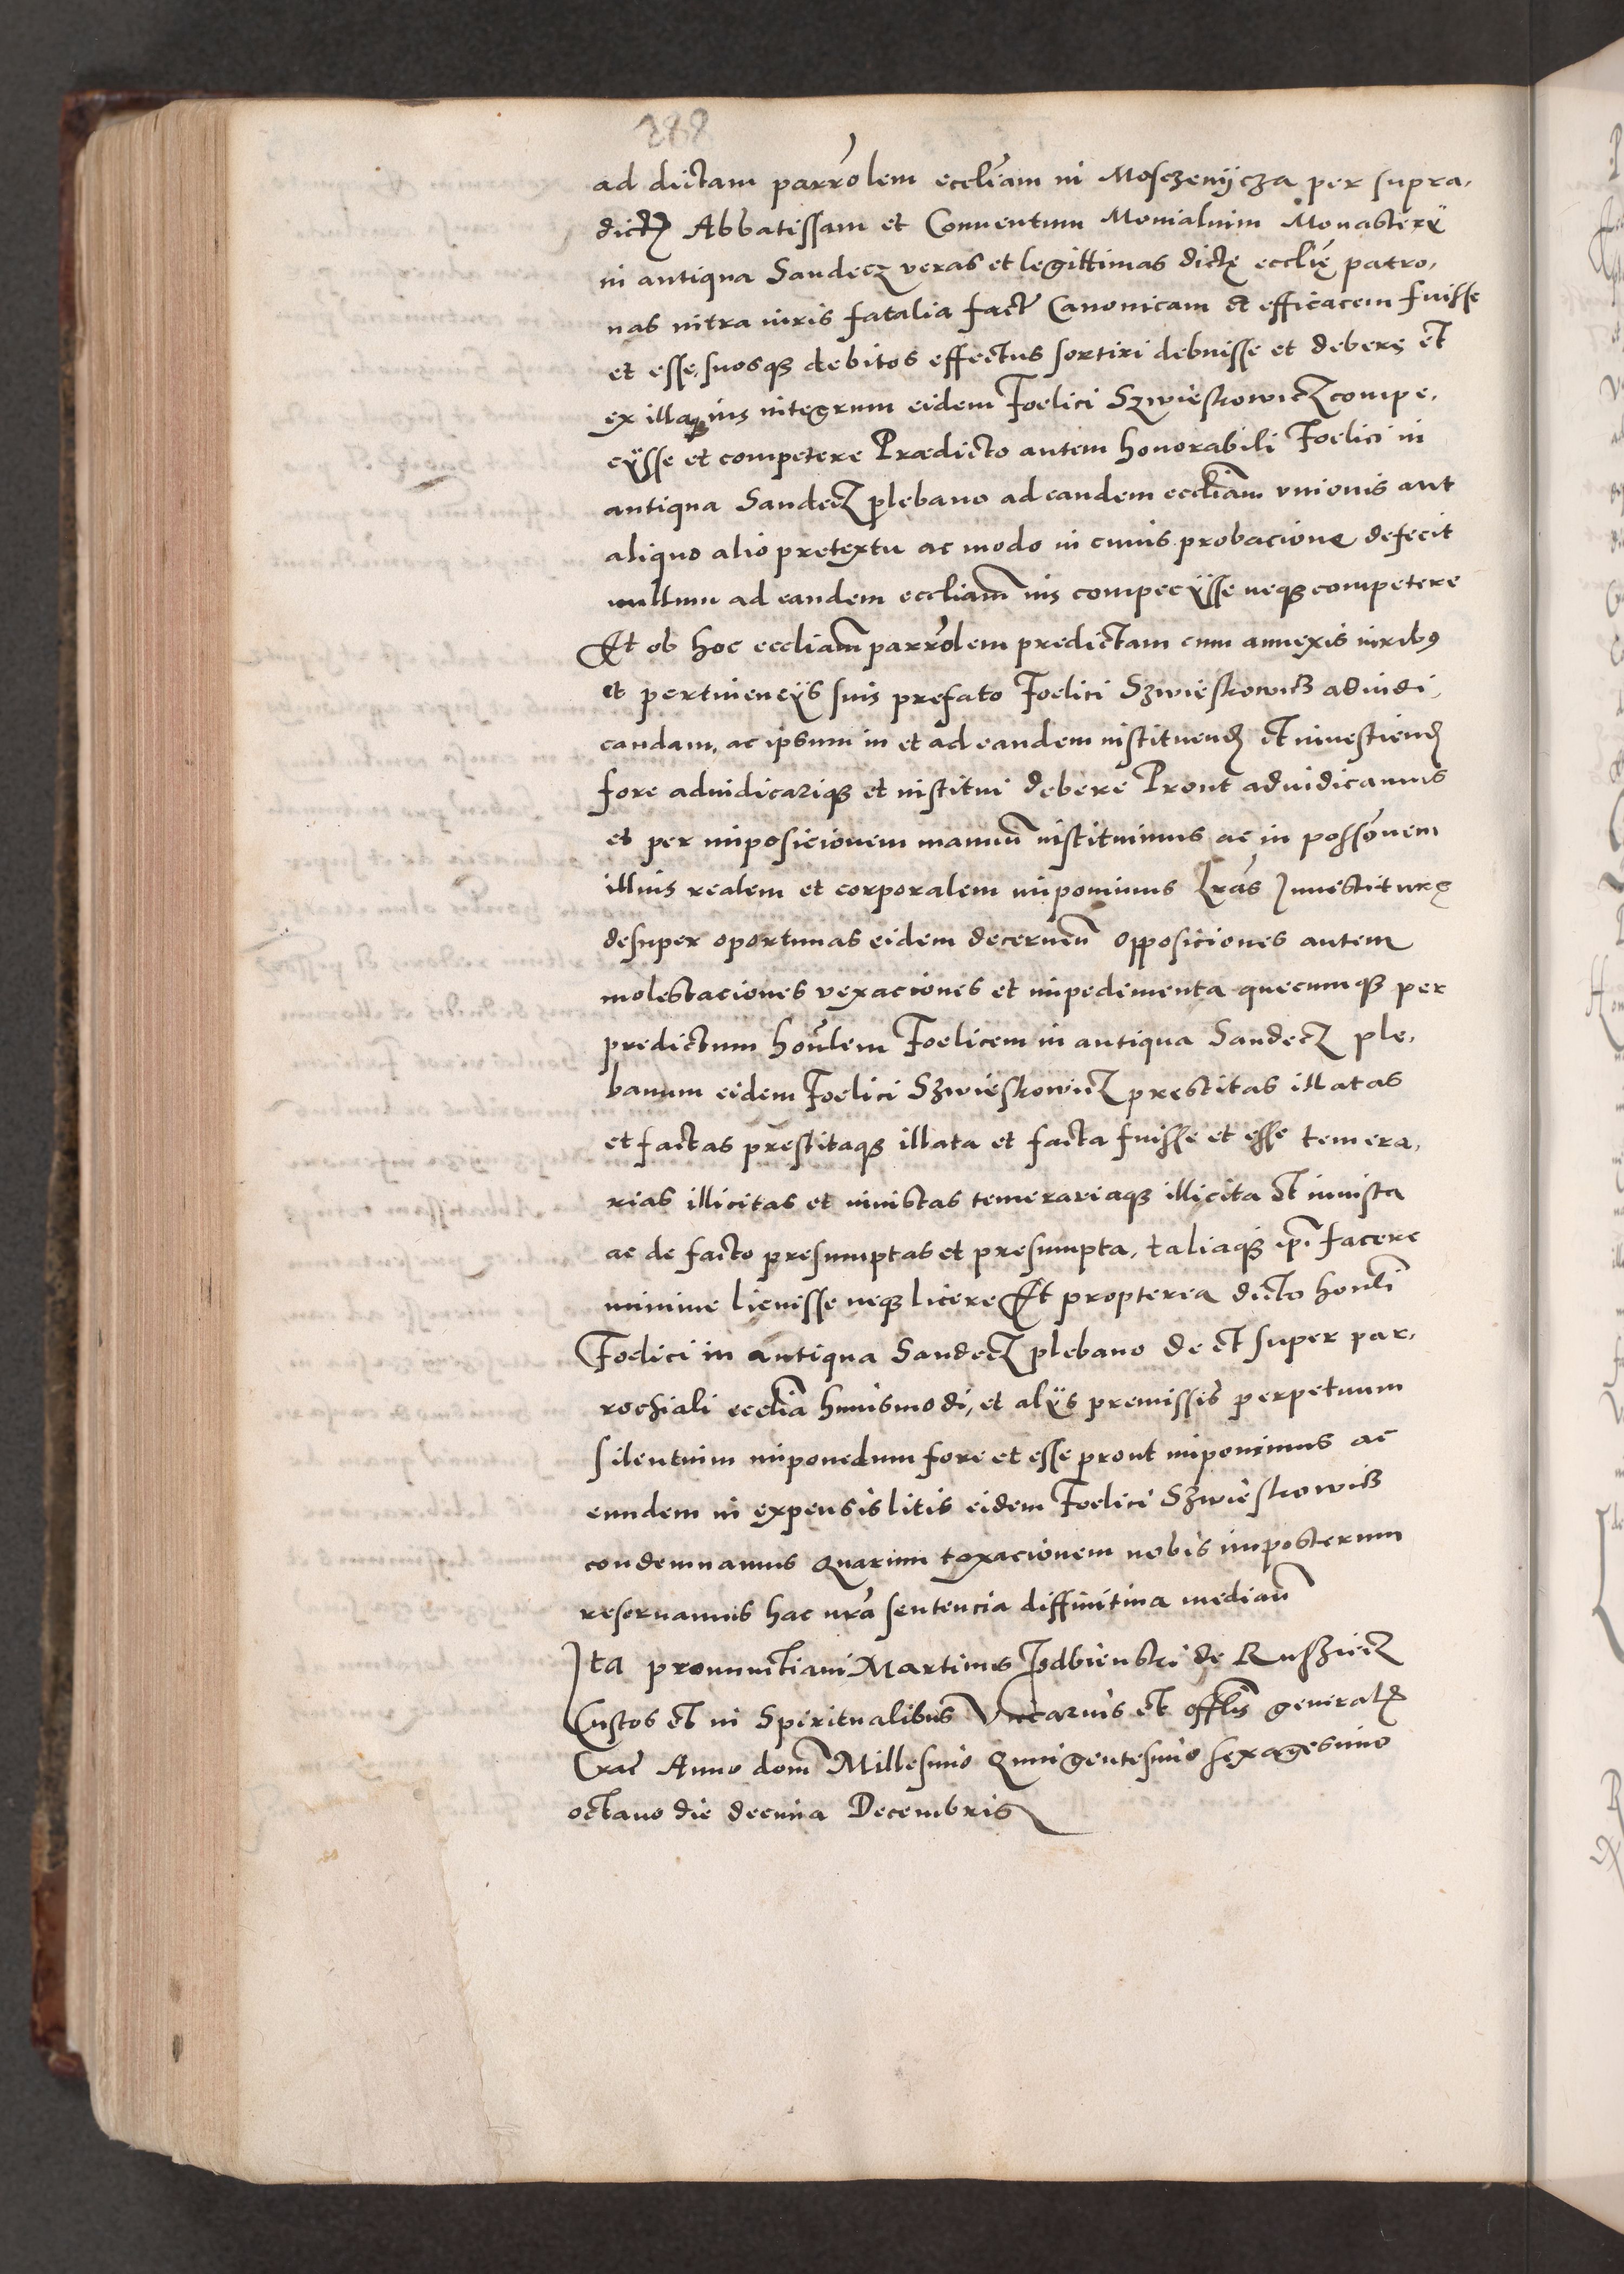 288
ad dictam parrolem eccliam in Mosczenijcza per supra,
dictā Abbatissam et Conuentum Monialium Monasterÿ
in antiqua Sandecz veras et legittimas dictę ecclię patro,
nas intra iuris fatalia factā Canonicam et efficacem fuisse
et esse, suosqȝ debitos effectus sortiri debuisse et deberę et
ex illaqȝ ius integrum eidem Foelici Szwieskowicz compe,
cÿsse et competere Prædicto autem honorabili Foelici in
antiqua Sandecz plebano ad eandem eccliam vnionis aut
aliquo alio pretextu ac modo in cuius probacione defecit
nullum ad eandem eccliam ius compecÿsse neqȝ competere
Et ob hoc eccliam parrolem predictam cum annexis iuribꝯ
et pertinencÿs suis prefato Foelici Szwieskowicz adiudi,
candam, ac ipsum in et ad eandem instituenđ et inuestienđ
fore adiudicariqȝ et institui debere Prout adiudicamus
et per imposicionem manuū instituimus ac in possōnem
illius realem et corporalem imponimus Lras Inuestiturę
desuper oportunas eidem decernen̄ Opposiciones autem
molestaciones vexaciones et impedimenta quecumqȝ per
predictum honlem Foelicem in antiqua Sandecz ple,
banum eidem Foelici Szwieskowicz prestitas illatas
et factas prestitaqȝ illata et facta fuisse et esse temera,
rias illicitas et iniustas temerariaqȝ illicita et iniusta
ac de facto presumptas et presumpta, taliaqȝ ip̄i facere
minime licuisse neqȝ licere Et propterea dicto honli
Foelici in antiqua Sandecz plebano de et super par,
rochiali ecclia huiusmodi, et alÿs premissis perpetuum
silentium imponedum fore et esse prout imponimus ac
eundem in expensis litis eidem Foelici Szwieskowicz
condemnamus Quarum taxacionem nobis imposterum
reseruamus hac nrā sentencia diffinitiua median̄
Ita pronunctiaui Martinus Izdbienski de Rusziecz
Custos et in Spiritualibus Vicarius et offlis generalis
Crac̄ Anno dom̄ Millesimo Quingentesimo sexagesimo
octauo die decima Decembris